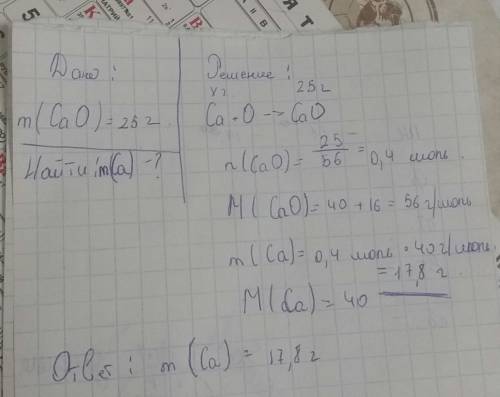 Дано:
m(CaO)=25 г.
Найти: m(Ca)-?
Решение:
X г 25 г
Ca+O->CaO
n(CaO)= 25/56 = 0,4 моль.
M(CaO)=40+16=56 г/моль
m(Ca)=0,4 моль•40 г/моль.
=17,8 г.
M(Ca)=40
Ответ: m(Ca)=17,8 г
5
К